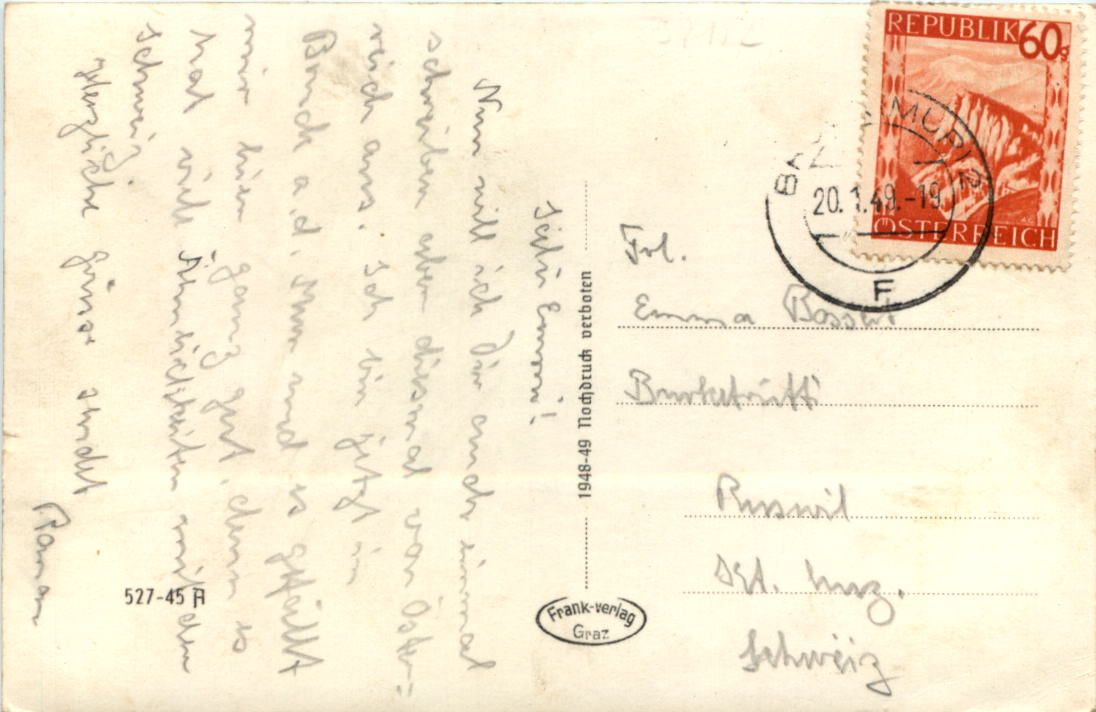 Nun will ich Dir auch einmal
schreiben aber diesmal von Öster=
reich aus. Ich bin jetzt in
Bruck a.d. Mur und es gefällt
mir hier ganz gut, denn es
hat viele Ähnlichkeiten mit der
Schweiz.
Herzliche Grüsse sendet
Roman
527-45 A
1948-49 Nachdruck verboten
Frank-verlag
Graz
REPUBLIK 60g
ÖSTERREICH
MUR
20.1.49.-19
F
Frl.
Emma
Ruswil
Kt. Luz.
Schweiz